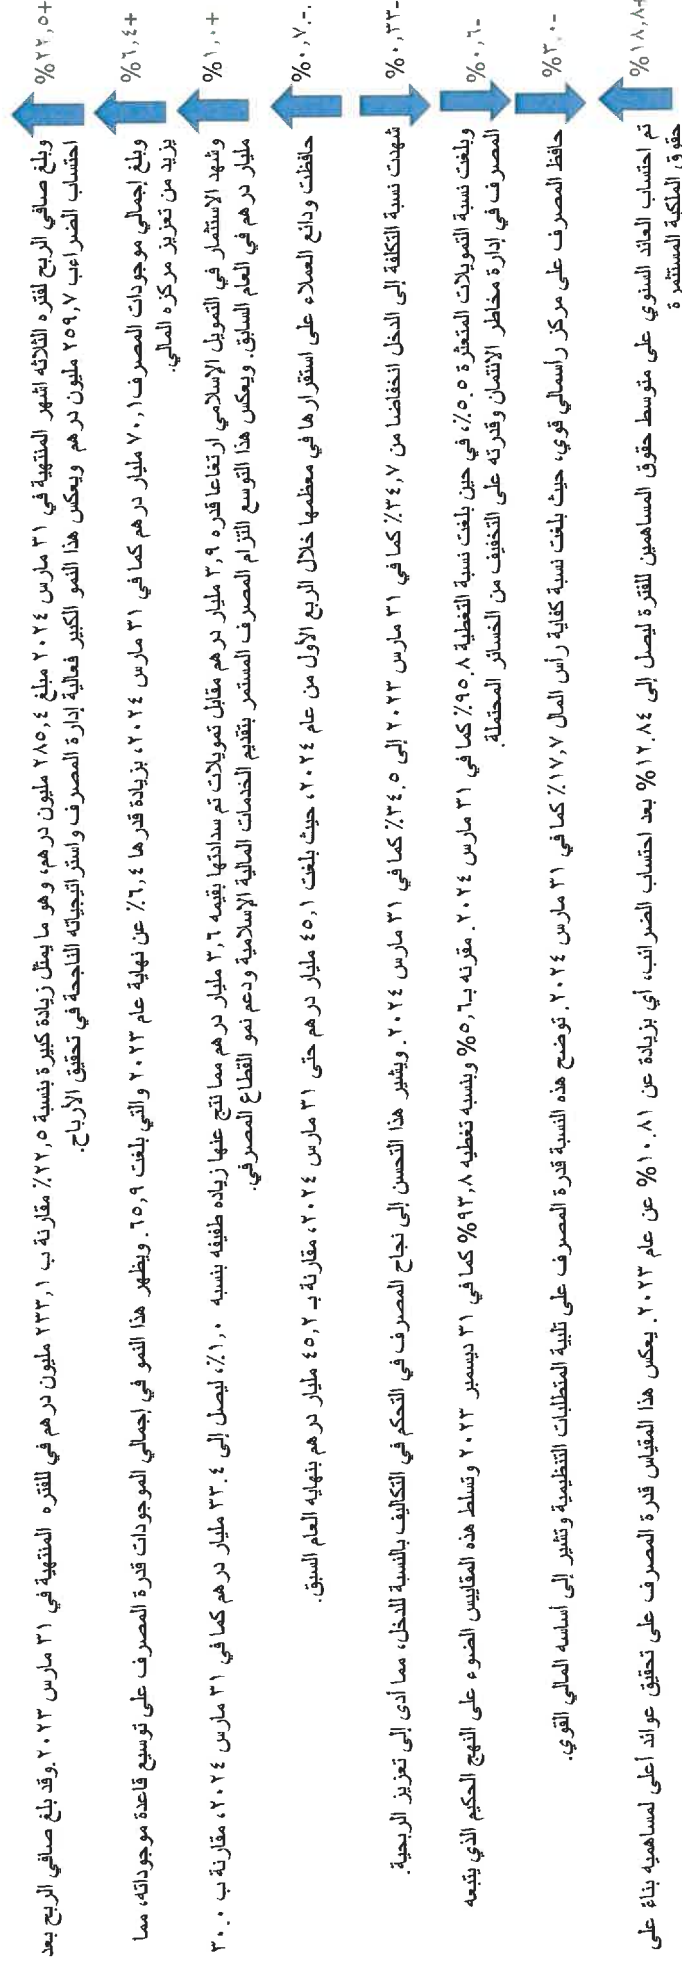 وبلغ صافي الربح لفتره الثلاثه اشهر المنتهية في ٣١ مارس ٢٠٢٤ مبلغ ٢٨٥,٤ مليون درهم، وهو ما يمثل زيادة كبيرة بنسبة ٢٢,٥٪ مقارنة ب ٢٣٣,١ مليون درهم في للفتره المنتهية في ٣١ مارس ٢٠٢٣.وقد بلغ صافي الربح بعد
احتساب الضراءب ٢٥٩,٧ مليون درهم ويعكس هذا النمو الكبير فعالية إدارة المصرف واستراتيجياته الناجحة في تحقيق الأرباح.
%٢٢,٥+
وبلغ إجمالي موجودات المصرف ٧٠,١ مليار درهم كما في ٣١ مارس ٢٠٢٤، بزيادة قدرها ٦,٤٪ عن نهاية عام ٢٠٢٣ والتي بلغت ٦٥,٩. ويظهر هذا النمو في إجمالي الموجودات قدرة المصرف على توسيع قاعدة موجوداته، مما
يزيد من تعزيز مركزه المالي.
%٦,٤+
وشهد الاستثمار في التمويل الإسلامي ارتفاعا قدره ٣,٩ مليار درهم مقابل تمويلات تم سدادتها بقيمه ٣,٦ مليار درهم مما نتج عنها زياده طفيفه بنسبه ١,٠٪، ليصل إلى ٣٣.٤ مليار درهم كما في ٣١ مارس ٢٠٢٤، مقارنة ب ٣٠.٠
مليار درهم في العام السابق. ويعكس هذا التوسع التزام المصرف المستمر بتقديم الخدمات المالية الإسلامية ودعم نمو القطاع المصرفي.
%١,٠+
حافظت ودائع العملاء على استقرارها في معظمها خلال الربع الأول من عام ٢٠٢٤، حيث بلغت ٤٥,١ مليار درهم حتى ٣١ مارس ٢٠٢٤، مقارنة بـ ٤٥,٢ مليار درهم بنهايه العام السبق.
%٠,٧.-
شهدت نسبة التكلفة إلى الدخل انخفاضا من ٣٤,٧٪ كما في ٣١ مارس ٢٠٢٣ إلى ٣٤.٥٪ كما في ٣١ مارس ٢٠٢٤. ويشير هذا التحسن إلى نجاح المصرف في التحكم في التكاليف بالنسبة للدخل، مما أدى إلى تعزيز الربحية.
%٠,٣٣-
وبلغت نسبة التمويلات المتعثرة ٥.٥٪، في حين بلغت نسبة التغطية ٩٥.٨٪ كما في ٣١ مارس ٢٠٢٤. مقرنه ب٥,٦% وبنسبه تغطيه ٩٣,٨% كما في ٣١ ديسمبر ٢٠٢٣ وتسلط هذه المقاييس الضوء على النهج الحكيم الذي يتبعه
المصرف في إدارة مخاطر الائتمان وقدرته على التخفيف من الخسائر المحتملة.
%٠,٦-
حافظ المصرف على مركز راسمالي قوي، حيث بلغت نسبة كفاية رأس المال ١٧,٧٪ كما في ٣١ مارس ٢٠٢٤. توضح هذه النسبة قدرة المصرف على تلبية المتطلبات التنظيمية وتشير إلى أساسه المالي القوي.
%٣.٠-
تم احتساب العائد السنوي على متوسط حقوق المساهمين للفترة ليصل إلى ١٢.٨٤% بعد احتساب الضرائب، أي بزيادة عن ١٠.٨١% عن عام ٢٠٢٣. يعكس هذا المقياس قدرة المصرف على تحقيق عوائد أعلى لمساهميه بناءً على
حقوق الملكية المستثمرة
%١٨,٨+